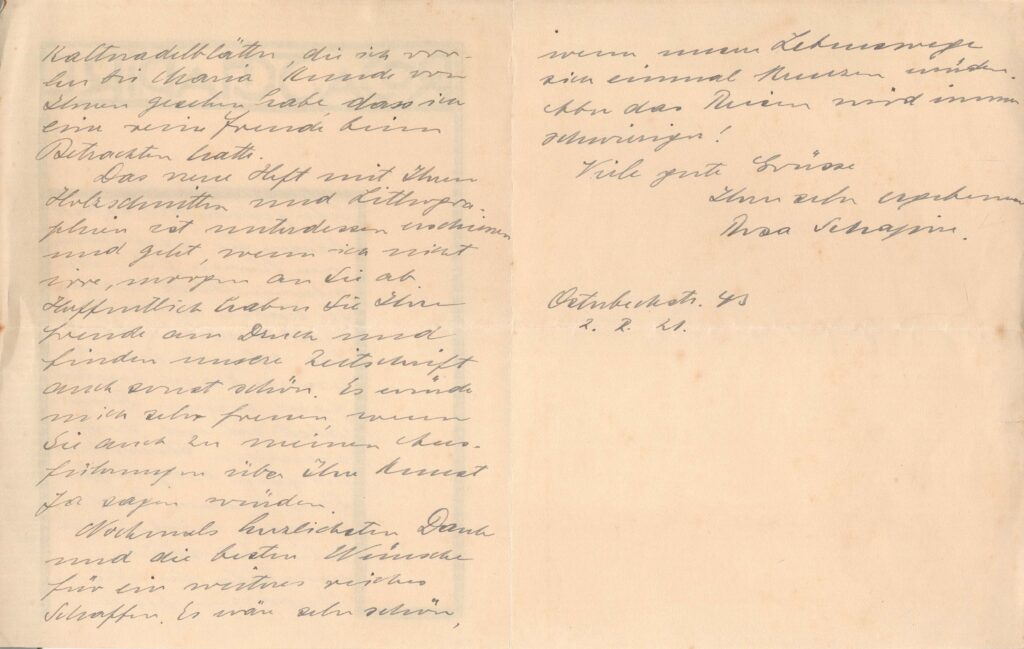 Kaltnadelblättern, die ich vor-
her bei Maria Kunde von
Ihnen gesehen habe dass ich
eine reine Freude beim
Betrachten hatte.
Das neue Heft mit Ihren
Holzschnitten und Lithogra-
phien ist unterdessen erschienen
und geht, wenn ich nicht
irre, morgen an Sie ab.
Hoffentlich haben Sie Ihre
Freude am Druck und
finden unsere Zeitschrift
auch sonst schön. Es würde
mich sehr freuen, wenn
Sie auch zu meinen Aus-
führungen über Ihre Kunst
Ja sagen würden.
Nochmals herzlichsten Dank
und die besten Wünsche
für ein weiteres reiches
Schaffen. Es wäre sehr schön,
wenn unsere Lebenswege
sich einmal kreuzen würden.
Aber das Reisen wird immer
schwieriger!
Viele gute Grüsse
Ihre sehr ergebene
Rosa Schapire.
Osterbeckstr. 43
2. X. 21.